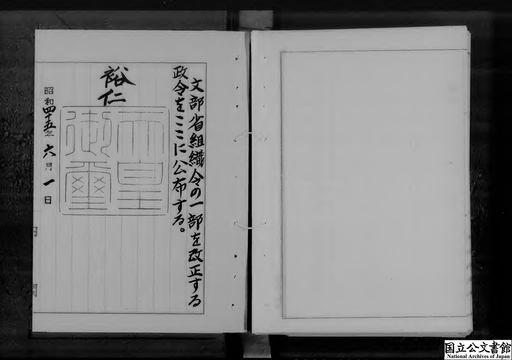 文部省組織令の一部を改正する
政令をここに公布する。
裕仁
天皇
御璽
昭和四十五年六月一日
国立公文書館
National Archives of Japan